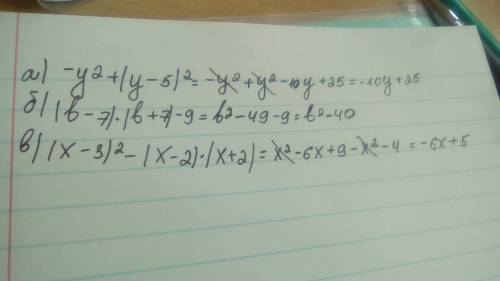 а) -y²+(y-5)²=-y²+y²-10y+25=-10y+25
б) (b-7)·(b+7)-9=b²-49-9=b²-40
в) (x-3)²-(x-2)·(x+2)=x²-6x+9-x²-4=-6x+5